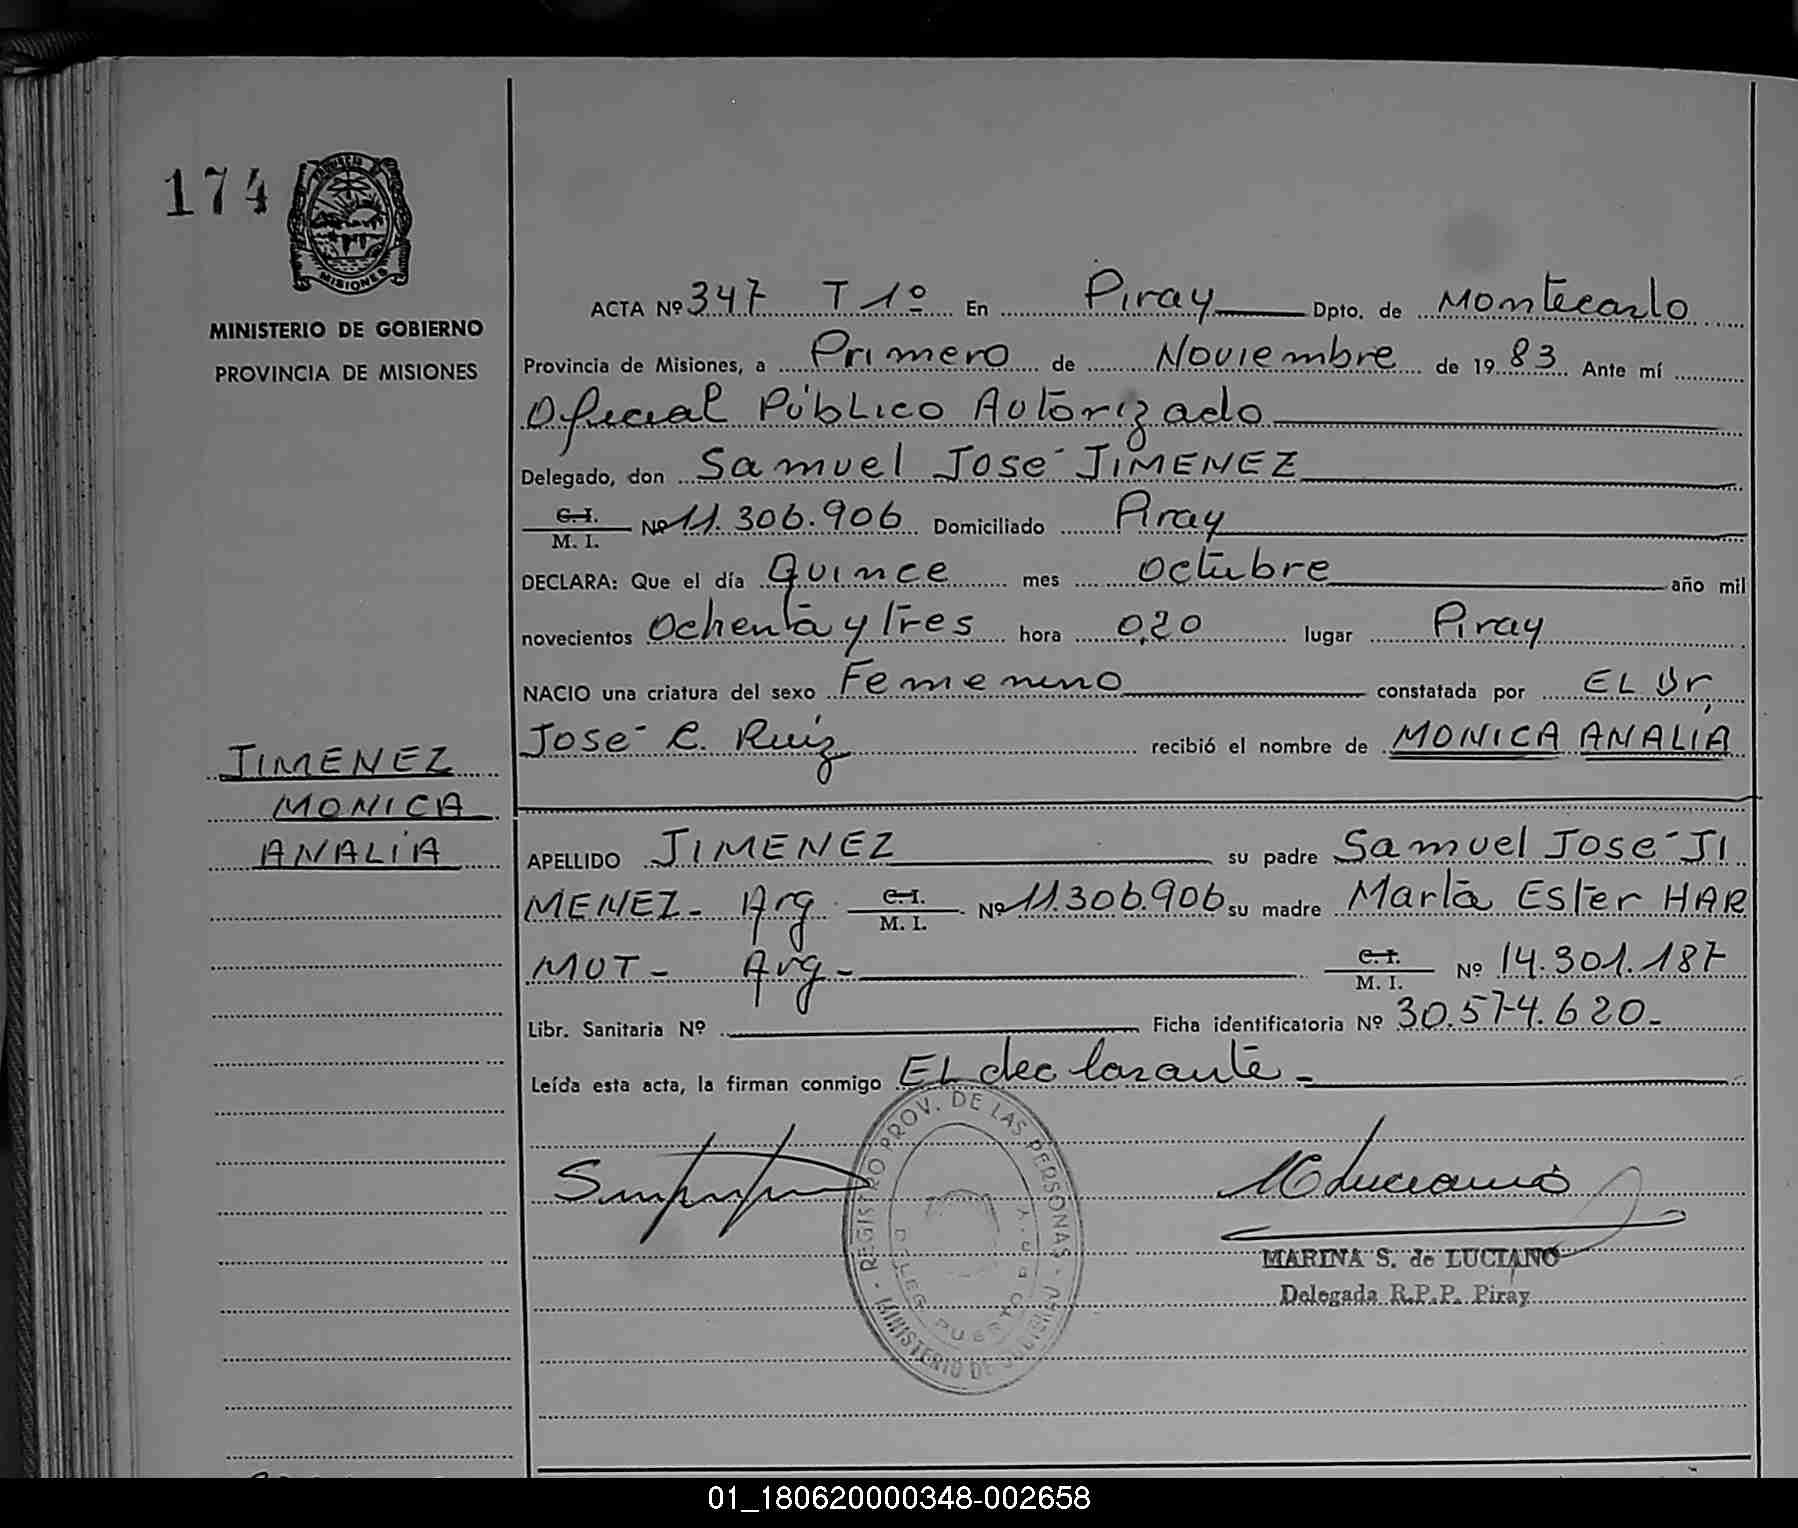 174
PROVINCIA
MISIONES
MINISTERIO DE GOBIERNO
PROVINCIA DE MISIONES
JIMENEZ
MONICA
ANALIA
ACTA Nº 347 T 1º En Piray Dpto. de Montecarlo
Provincia de Misiones, a Primero de Noviembre de 1983 Ante mí
Oficial Público Autorizado
Delegado, don Samuel José JIMENEZ
C.I.
M. I. Nº 11.306.906 Domiciliado Piray
DECLARA: Que el día Quince mes octubre año mil
novecientos Ochenta y Tres hora 0,20 lugar Piray
NACIO una criatura del sexo Femenino constatada por EL Dr,
José C. Ruiz recibió el nombre de MONICA ANALIA
APELLIDO JIMENEZ su padre Samuel José JI
MENEZ - Arg C.I. M. I. Nº 11.306.906 su madre Marta Ester HAR
MUT - Arg - C.I. M. I. Nº 14.301.187
Libr. Sanitaria Nº Ficha identificatoria Nº 30.574.620-
Leída esta acta, la firman conmigo EL declarante -
REGISTRO PROV. DE LAS PERSONAS - MINISTERIO DE
PUERTO
MARINA S. de LUCIANO
Delegada R.P.P. Piray
01_180620000348-002658